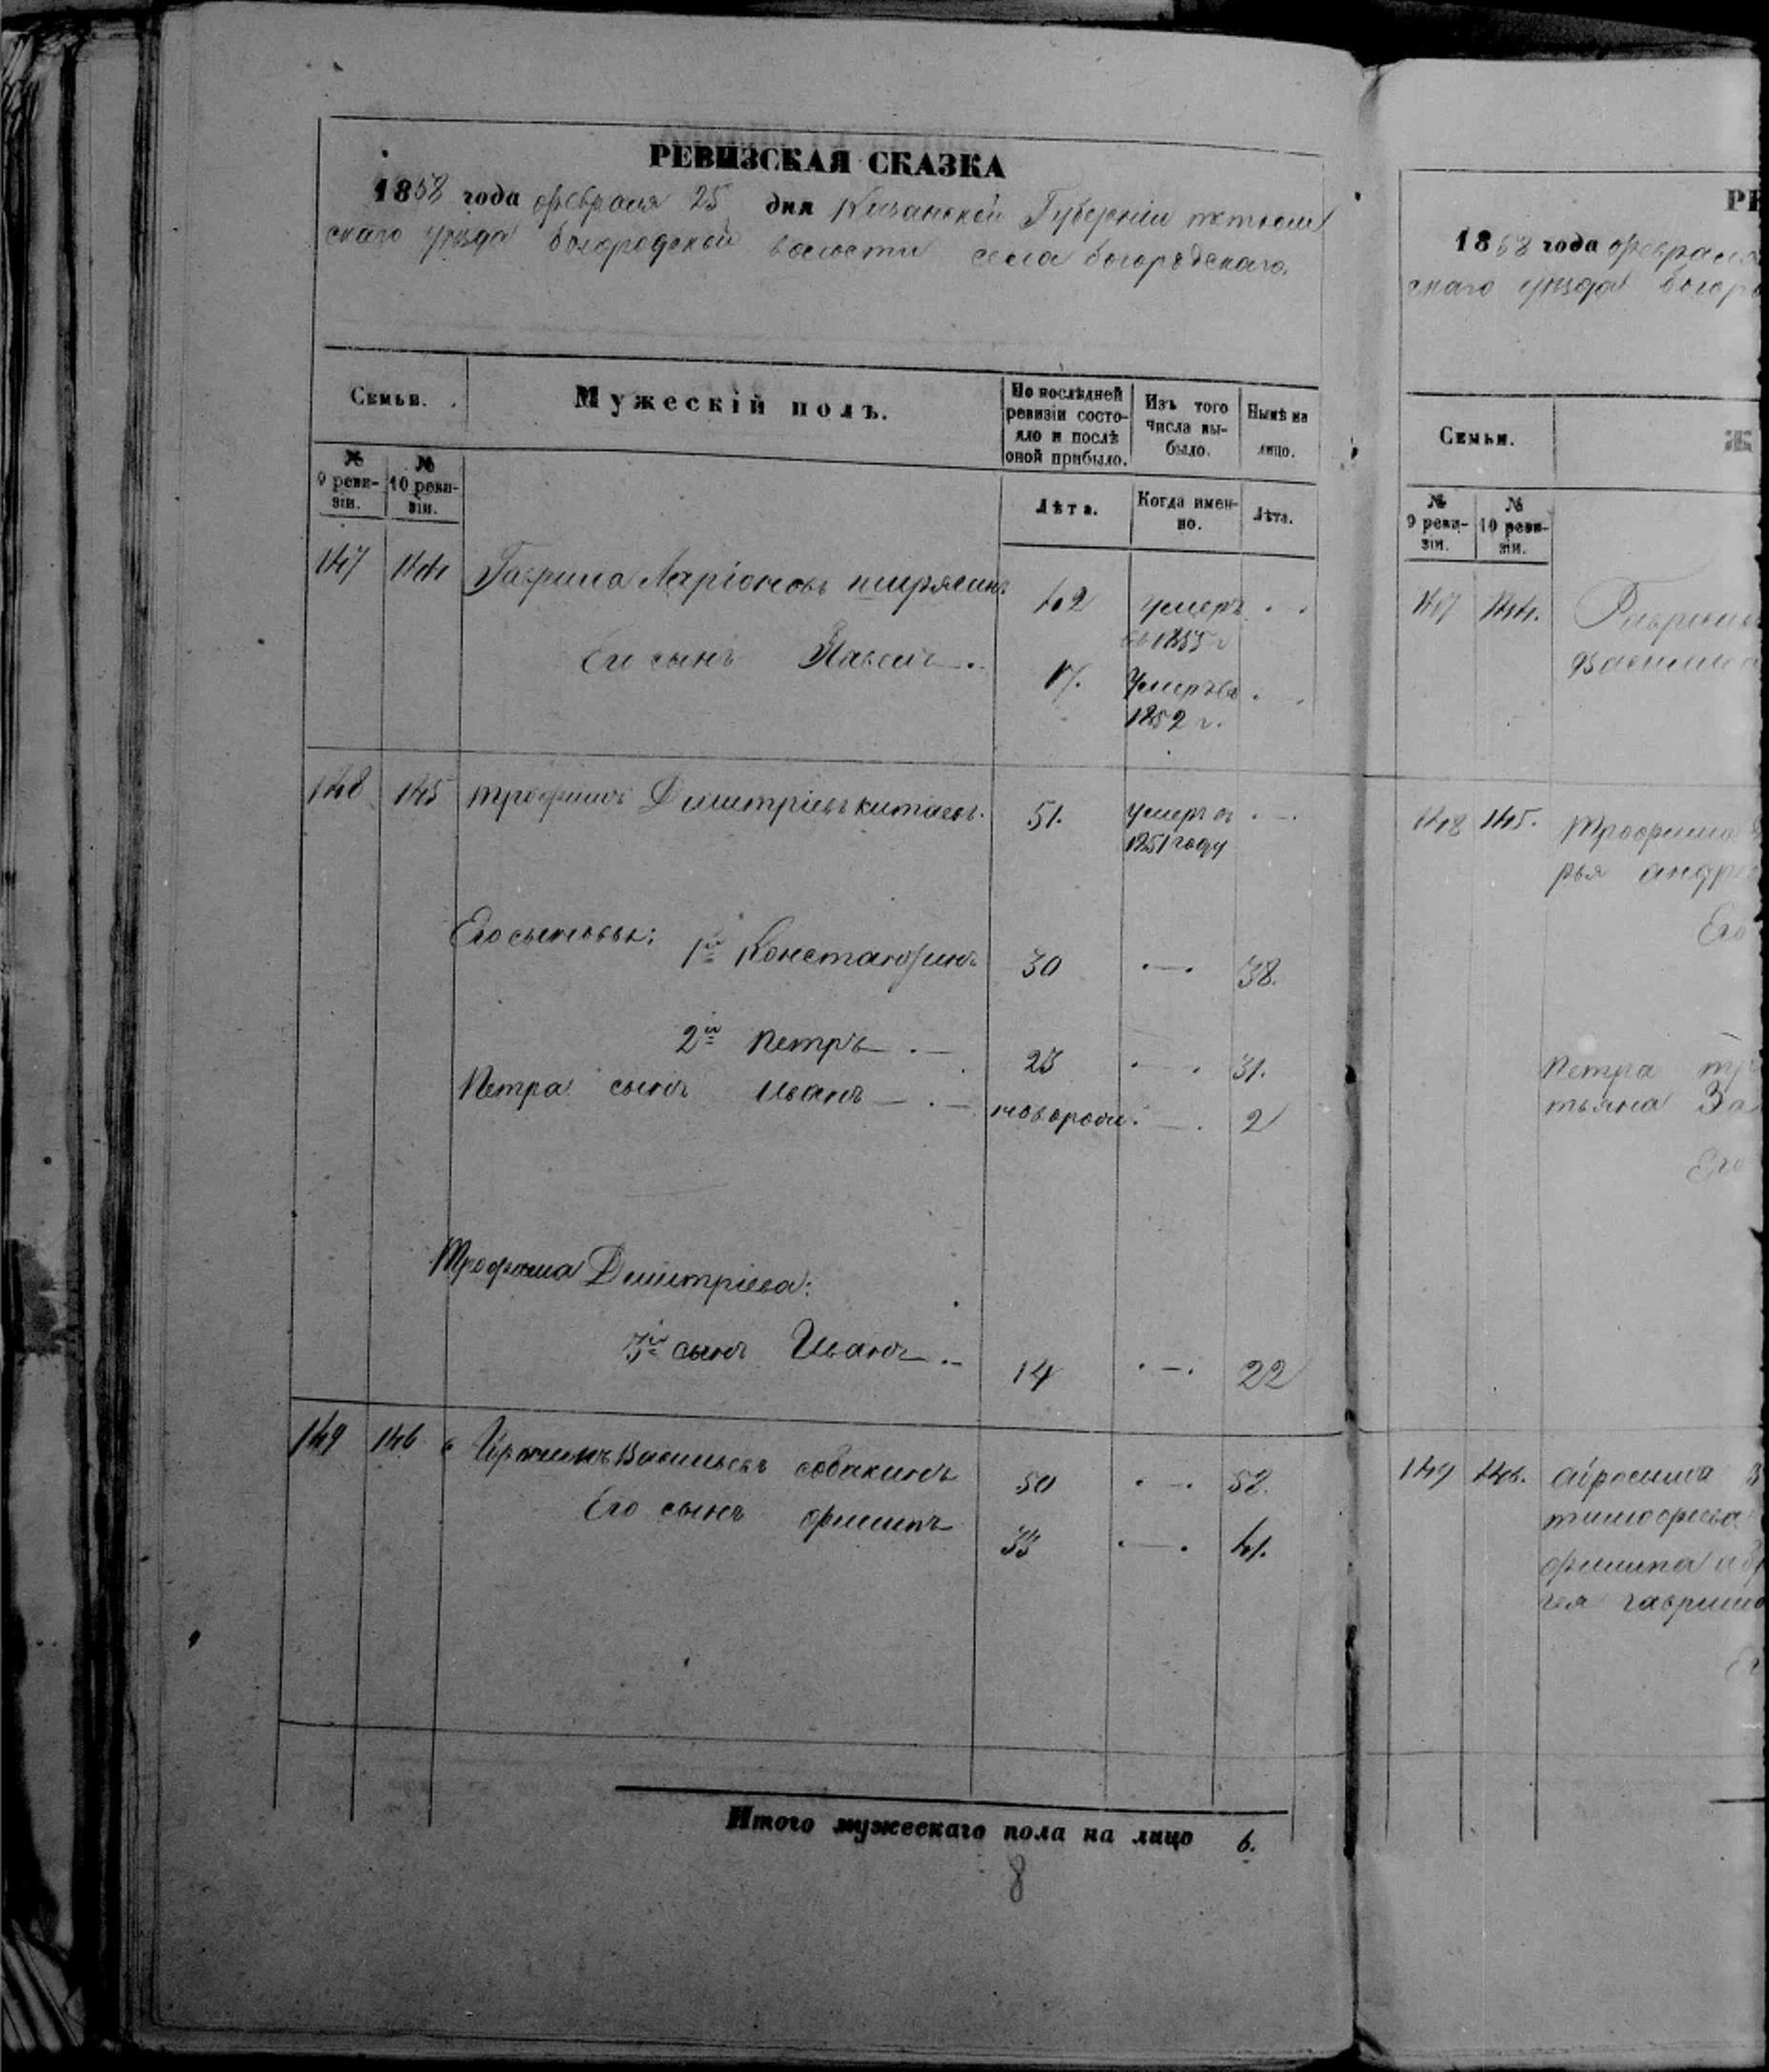 РЕВИЗСКАЯ СКАЗКА
1858 года февраля 25 дня Казанской Губерніи тетюш
скаго уѣзда богородской волости села богородскаго.
Семьи.
Мужескій полъ.
По послѣдней ревизіи состояло и послѣ оной прибыло.
Изъ того числа выбыло.
Нынѣ на лицо.
№ 9 ревизіи.
№ 10 ревизіи.
Лѣта.
Когда именно.
Лѣта.
147 144 Гаврила Ларіоновъ 42 умеръ
въ 1855 г
Его сынъ Павелъ 17. Умеръ въ
1852 г.
148 145 трофимъ Димитріевъ китаевъ. 51. умеръ въ
1851 году
Его сыновья: 1й Константинъ 30 38.
2й петръ 23 31.
Петра сынъ иванъ новорож. 2
Трофима Димитріева:
3й сынъ Иванъ 14 22
149 146 Васильевъ собакинъ 50 58.
Его сынъ филипъ 33 41.
Итого мужескаго пола на лицо 6.
8
РЕ
1858 года февраля
скаго уѣзда богор
Семьи.
Ж
№ 9 ревизіи.
№ 10 ревизіи.
147 144. Гаврилы
148 145. трофима
рья андре
Его
петра тр
тьяна За
Его
149 146. абросима В
тимофеева
филипа абр
гаврило
Ег